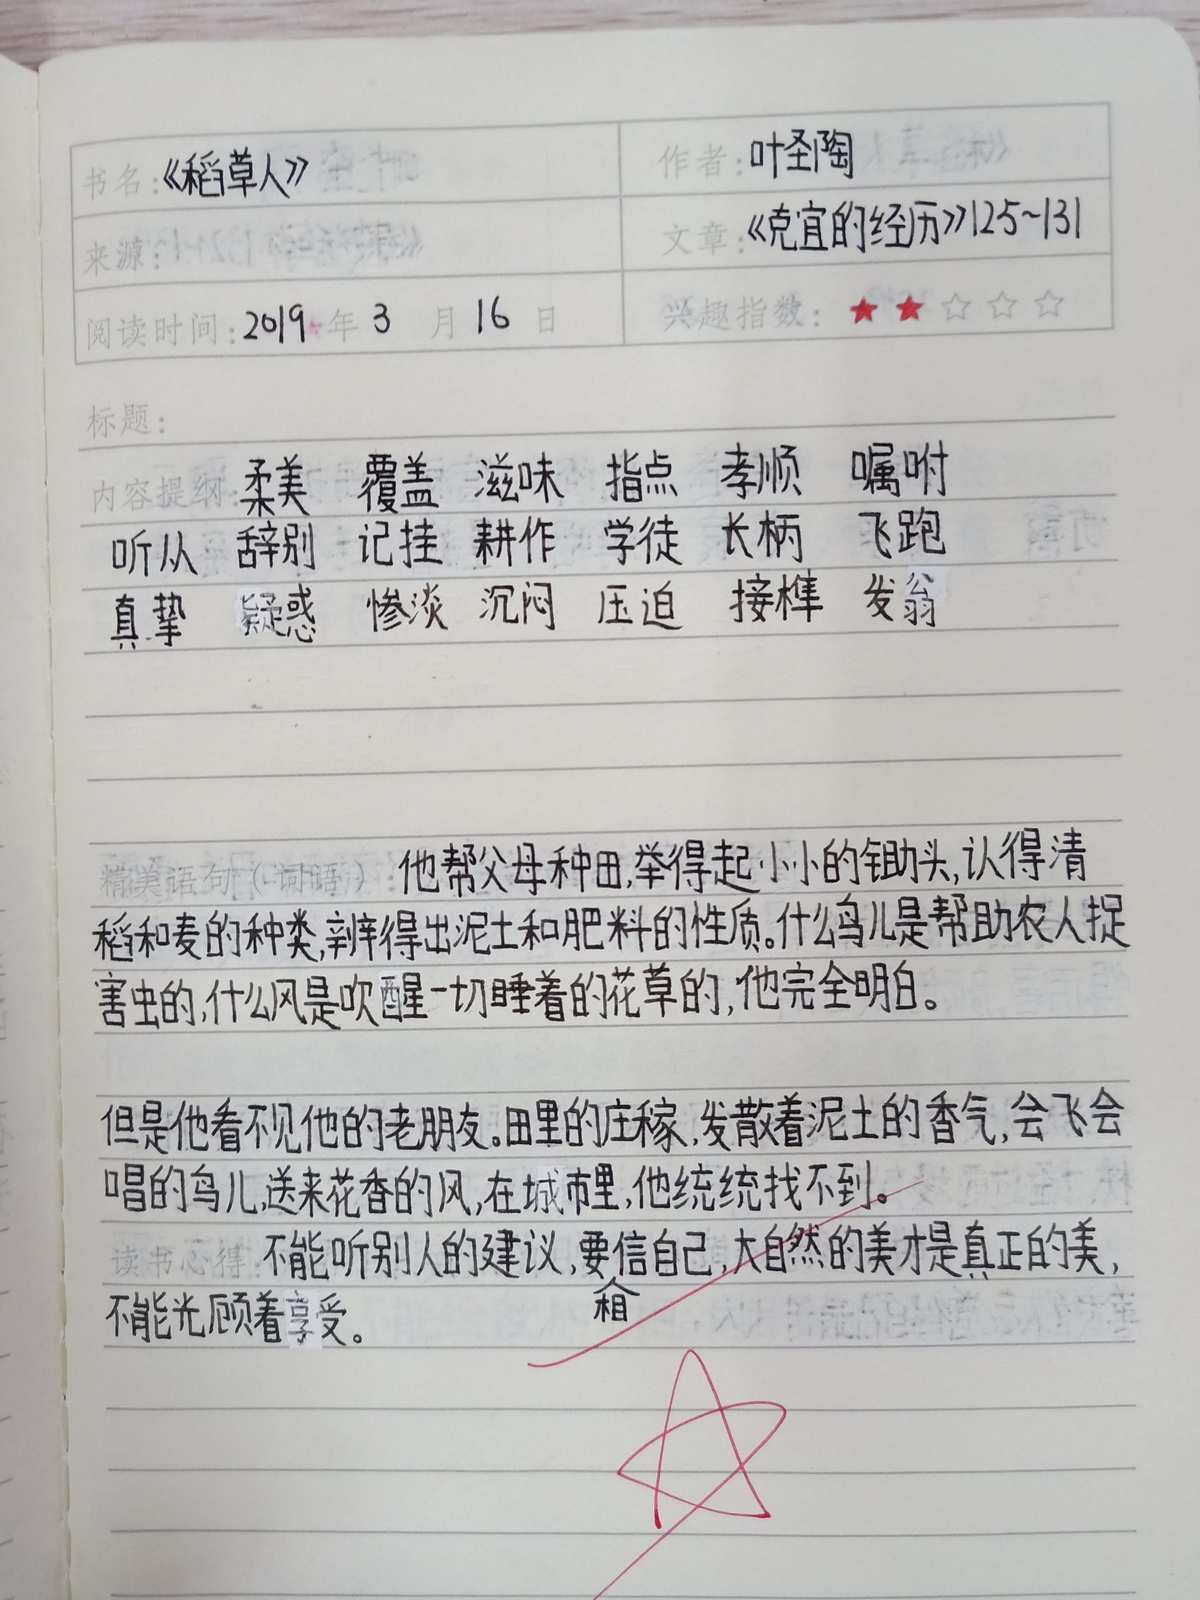 书名:《稻草人》 作者:叶圣陶
来源: 文章:《克宜的经历》125~131
阅读时间:2019年3月16日 兴趣指数:★★☆☆☆
标题:
内容提纲:柔美 覆盖 滋味 指点 孝顺 嘱咐
听从 辞别 记挂 耕作 学徒 长柄 飞跑
真挚 疑惑 惨淡 沉闷 压迫 接榫 发翁
精美语句(词语):他帮父母种田,举得起小小的锄头,认得清
稻和麦的种类,辨得出泥土和肥料的性质。什么鸟儿是帮助农人捉
害虫的,什么风是吹醒一切睡着的花草的,他完全明白。
但是他看不见他的老朋友。田里的庄稼,发散着泥土的香气,会飞会
唱的鸟儿,送来花香的风,在城市里,他统统找不到。
读书心得:不能听别人的建议,要信自己,大自然的美才是真正的美,
相
不能光顾着享受。